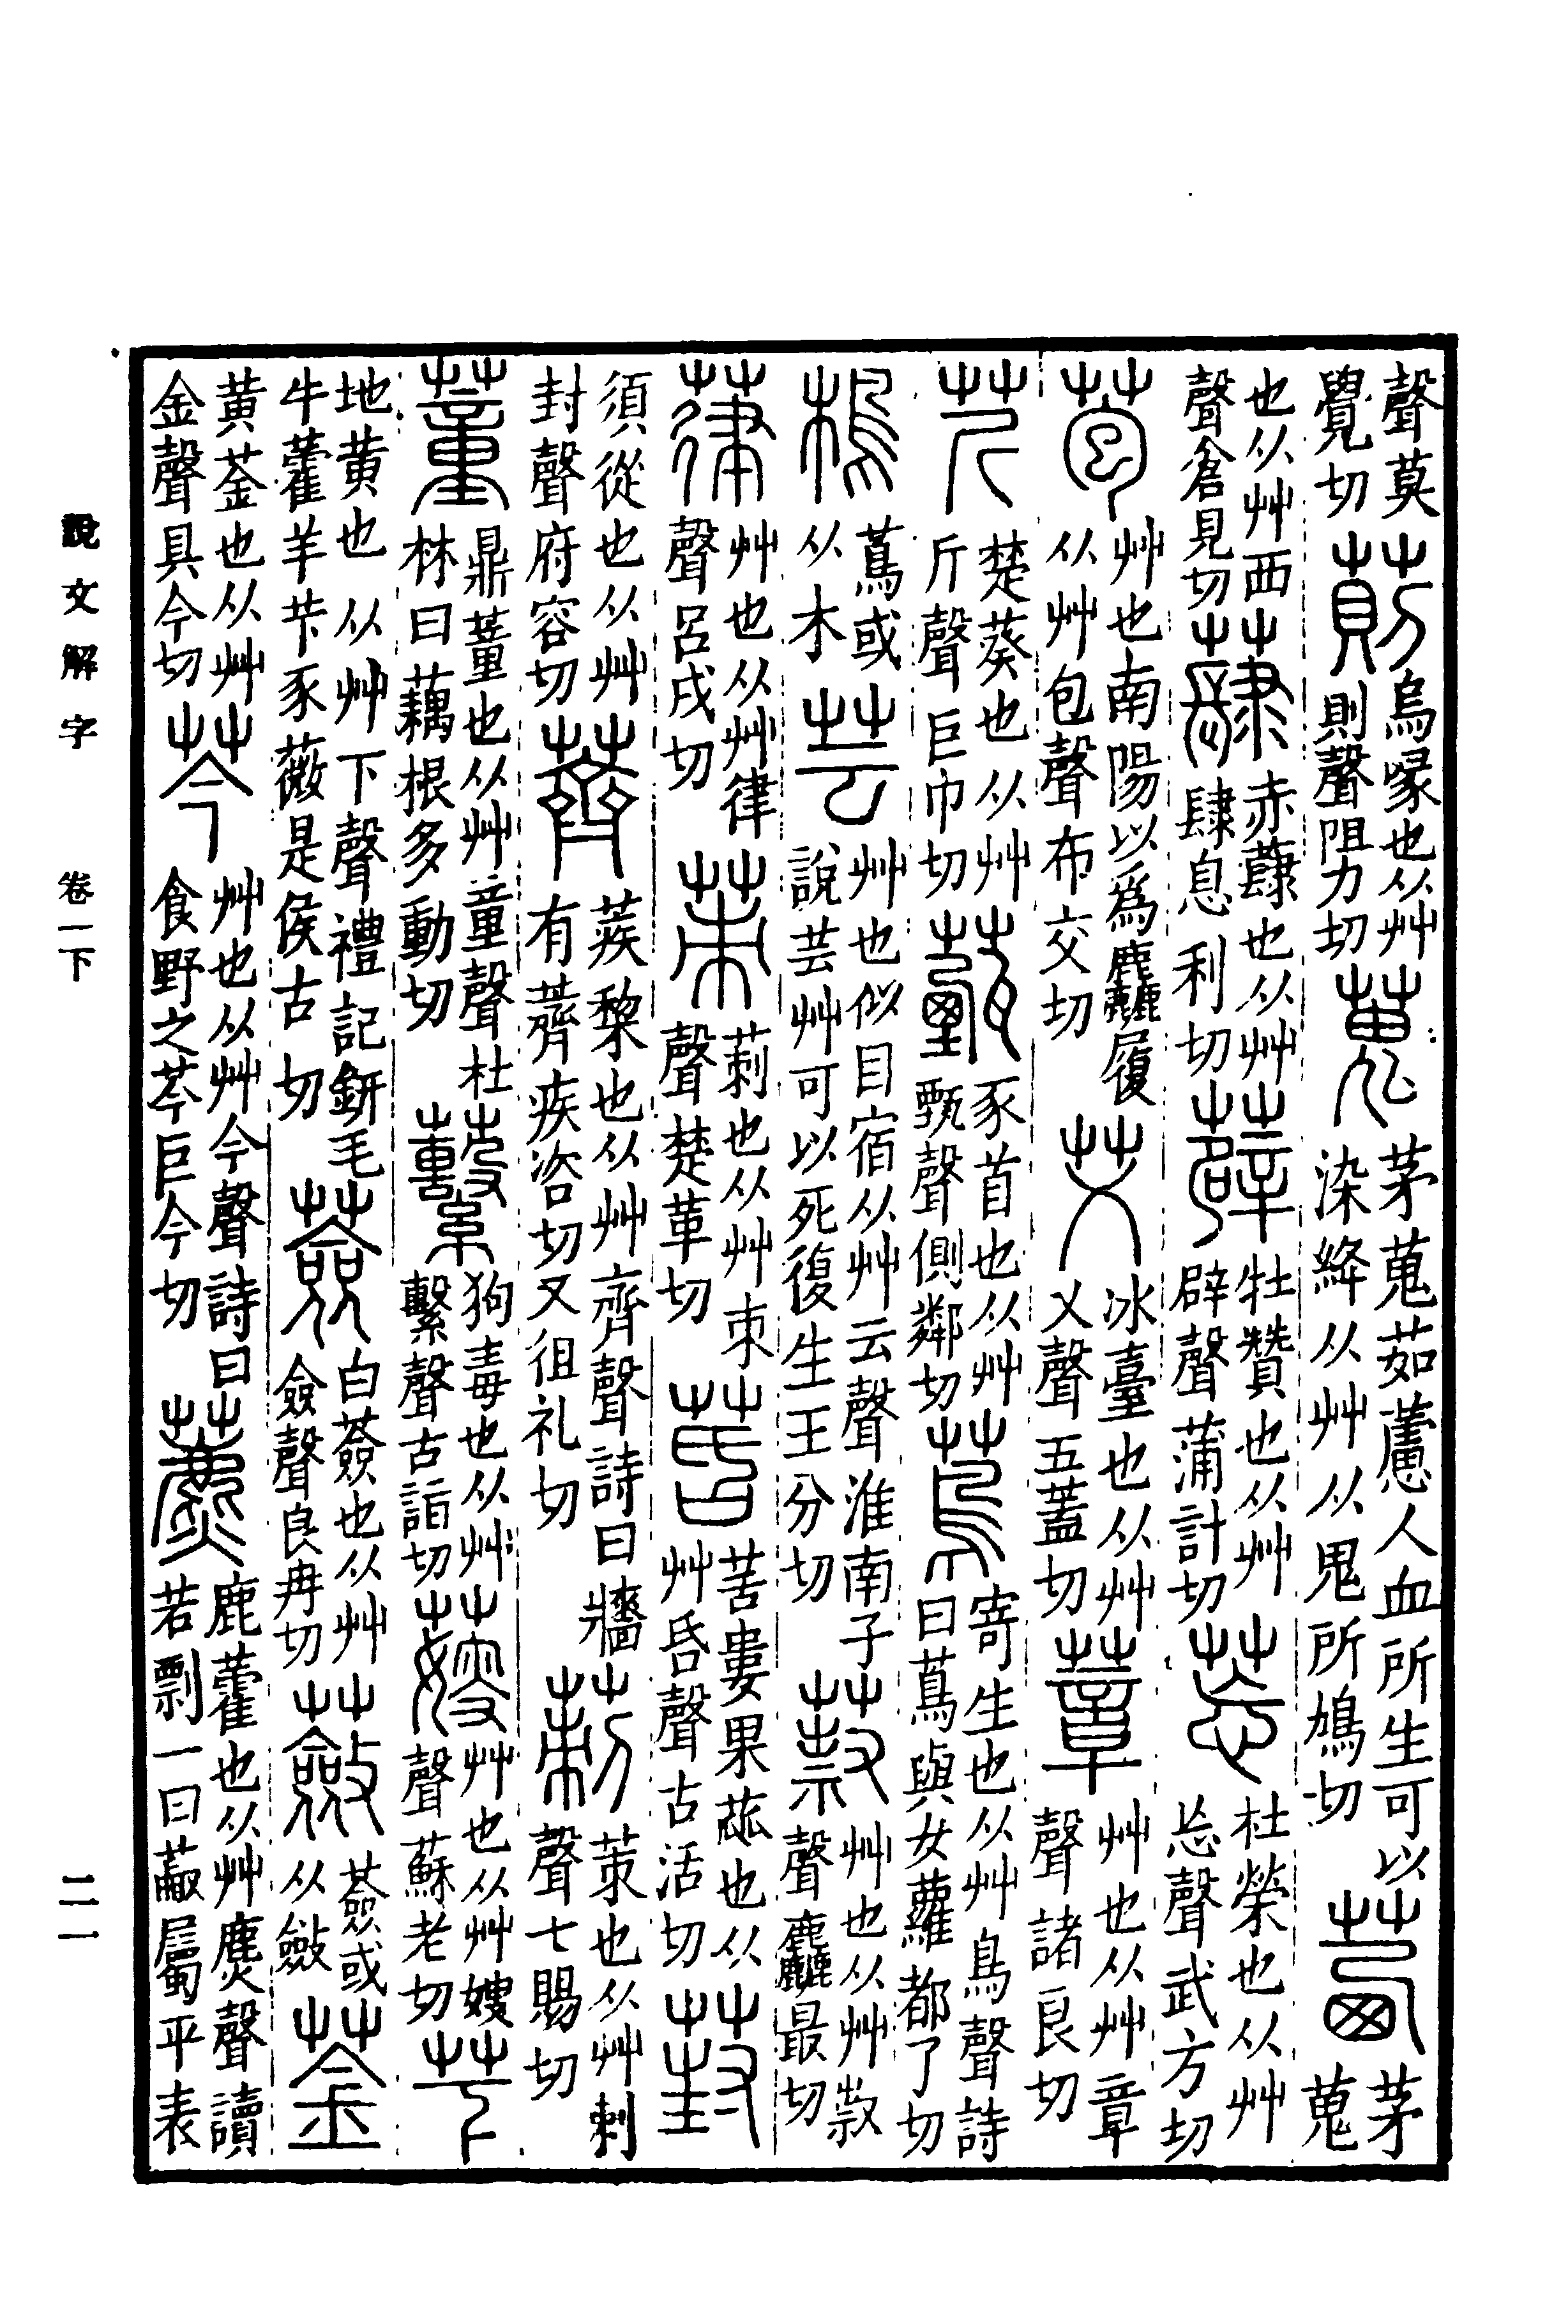 聲莫覺切萴烏喙也从艸則聲阻力切蒐茅蒐茹藘人血所生可以染絳从艸从鬼所鳩切茜茅蒐
也从艸西聲倉見切蕼赤蕼也从艸肆息利切薜牡贊也从艸辟聲蒲計切莣杜榮也从艸忘聲武方切
苞艸也南陽以爲麤履从艸包聲布交切艾冰臺也从艸乂聲五蓋切葦艸也从艸章聲諸良切
芹楚葵也从艸斤聲巨巾切薽豕首也从艸甄聲側鄰切蔦寄生也从艸鳥聲詩曰蔦與女蘿都了切
樢蔦或从木芸艸也似目宿从艸云聲淮南子說芸艸可以死復生王分切艸也从艸聲麤最切
葎艸也从艸律聲呂戌切茦莿也从艸朿聲楚革切苦婁果蓏也从艸昏聲古活切葑
須從也从艸封聲府容切薺蒺棃也从艸齊聲詩曰牆有薺疾咨切又徂礼切莿茦也从艸刺聲七賜切
董鼎董也从艸童聲杜林曰藕根多動切蘻狗毒也从艸繫聲古詣切䕅艸也从艸嫂聲蘇老切芐
地黃也从艸下聲禮記鈃毛牛藿羊芐豕薇是侯古切薟白薟也从艸僉聲良冉切蘞薟或从斂菳
黃菳也从艸金聲具今切芩艸也从艸今聲詩曰食野之芩巨今切藨鹿藿也从艸麃聲讀若剽一曰蔽屬平表
說文解字　卷一下　二一